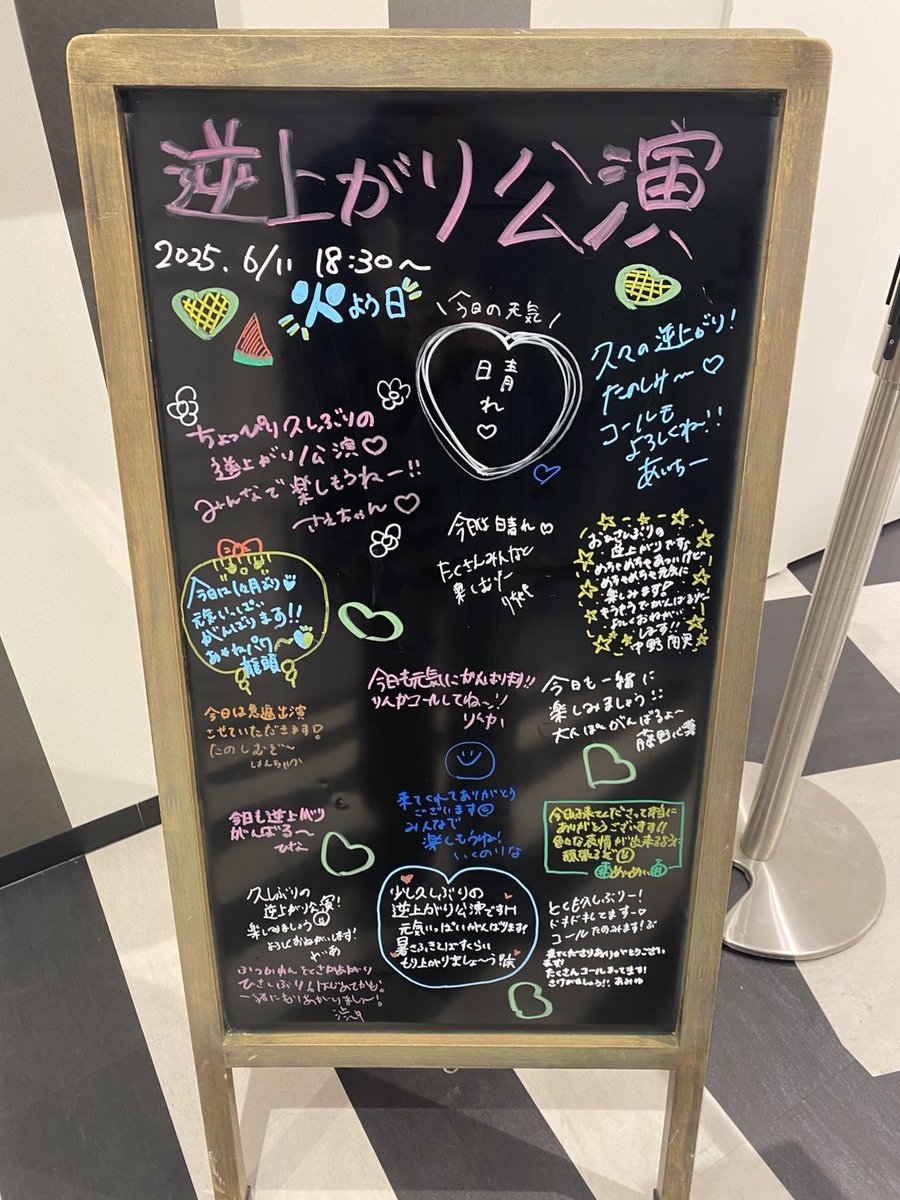 逆上がり公演
2025. 6/11 18:30〜
火よう日
\今日の元気/
晴れ♡
久々の逆上がり!
たのしみ〜♡
コールも
よろしくね!!
あいちー
ちょっぴり久しぶりの
逆上がり公演♡
みんなで楽しもうねー!!
さえちゃん♡
今日は晴れ♡
たくさんみんなと
楽しむたー
おひさしぶりの
逆上がりです
めちゃめちゃあついけど
めちゃめちゃ元気に
楽しみます
がんばるたー
よろしくおねがい
します!!
中野
今日は
元気いっぱい
がんばります!!
龍頭
今日も元気にがんばります!!
りんかコールしてね〜!
りんか
今日も一緒に
楽しみましょう!!
がんばるよ〜
藤野心葉
今日は急遽出演
させていただきます!
たのしむぞ〜
はんちゃか
来てくれてありがとう
ございます
みんなで
楽しもうね!
いくのりな
今日も逆上がり
がんばる〜
ひな
今日は来てくださって本当に
ありがとうございます!!
色々な表情が出来るように
頑張るぞ
めいめい
久しぶりの
逆上がり公演!
楽しみましょう
よろしくおねがいします!
少し久しぶりの
逆上がり公演です
元気いっぱいがんばります!
暑さふきとばすくらい
もり上がりましょ〜う!
とても久しぶりー!
ドキドキしてます
コールたのみます!
来てくださりありがとうござい
ます!
たくさんコールまってます!
さけびましょう!! あみゆ
一緒にもりあがりましょ〜!